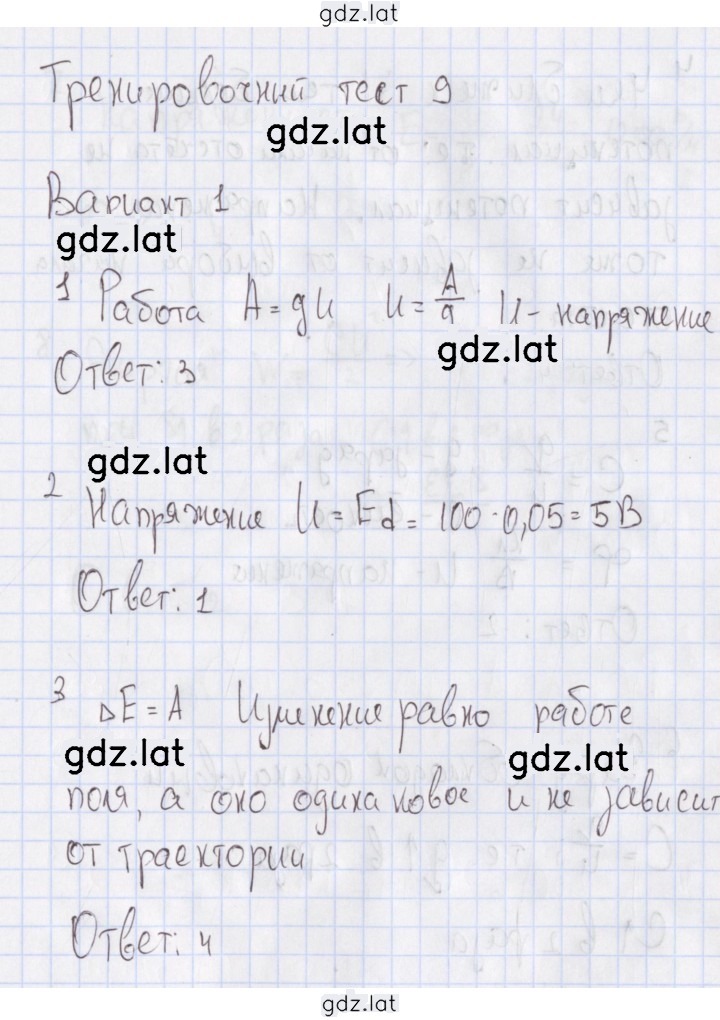 gdz.lat
Тренировочный тест 9
gdz.lat
Вариант 1
gdz.lat
1 Работа A = qU U = A/q U - напряжение
gdz.lat
Ответ: 3
gdz.lat
2 Напряжение U = Ed = 100 · 0,05 = 5 В
Ответ: 1
3 ΔE = A Изменение равно работе
gdz.lat gdz.lat
поля, а оно одинаковое и не зависит
от траектории
Ответ: 4
gdz.lat